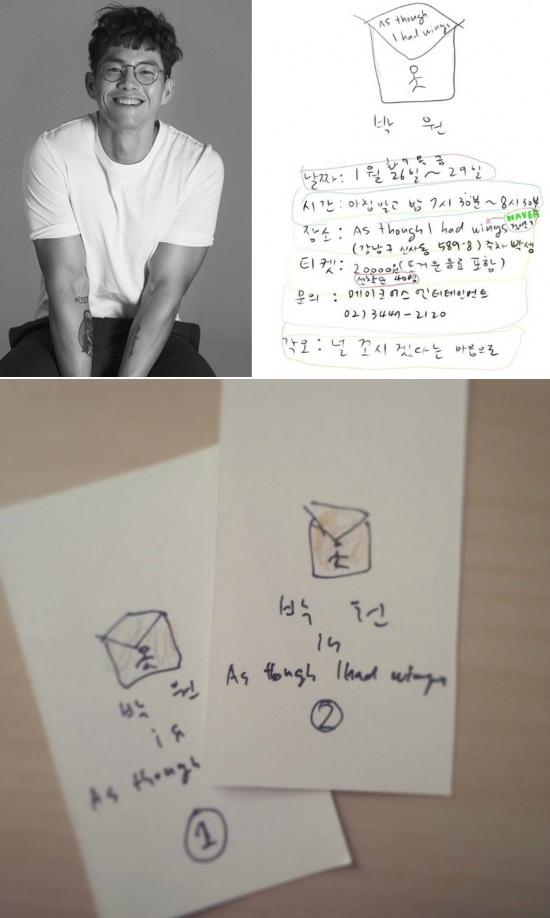 As though
I had wings
박 원
수목금
날짜 : 1월 26일 ~ 29일
시간 : 아침 말고 밤 7시 30분 ~ 8시 30분
NAVER
장소 : As though I had wings
(강남구 신사동 589-8) 주차 빡셈
티켓 : 20000원 (뜨거운 음료 포함)
선착순 40명
문의 : 메이크어스 엔터테인먼트
02) 3447-2120
각오 : 널 꼬시겟다는 마음으로
박 원
is
As though
①
박 원
is
As though I had wings
②